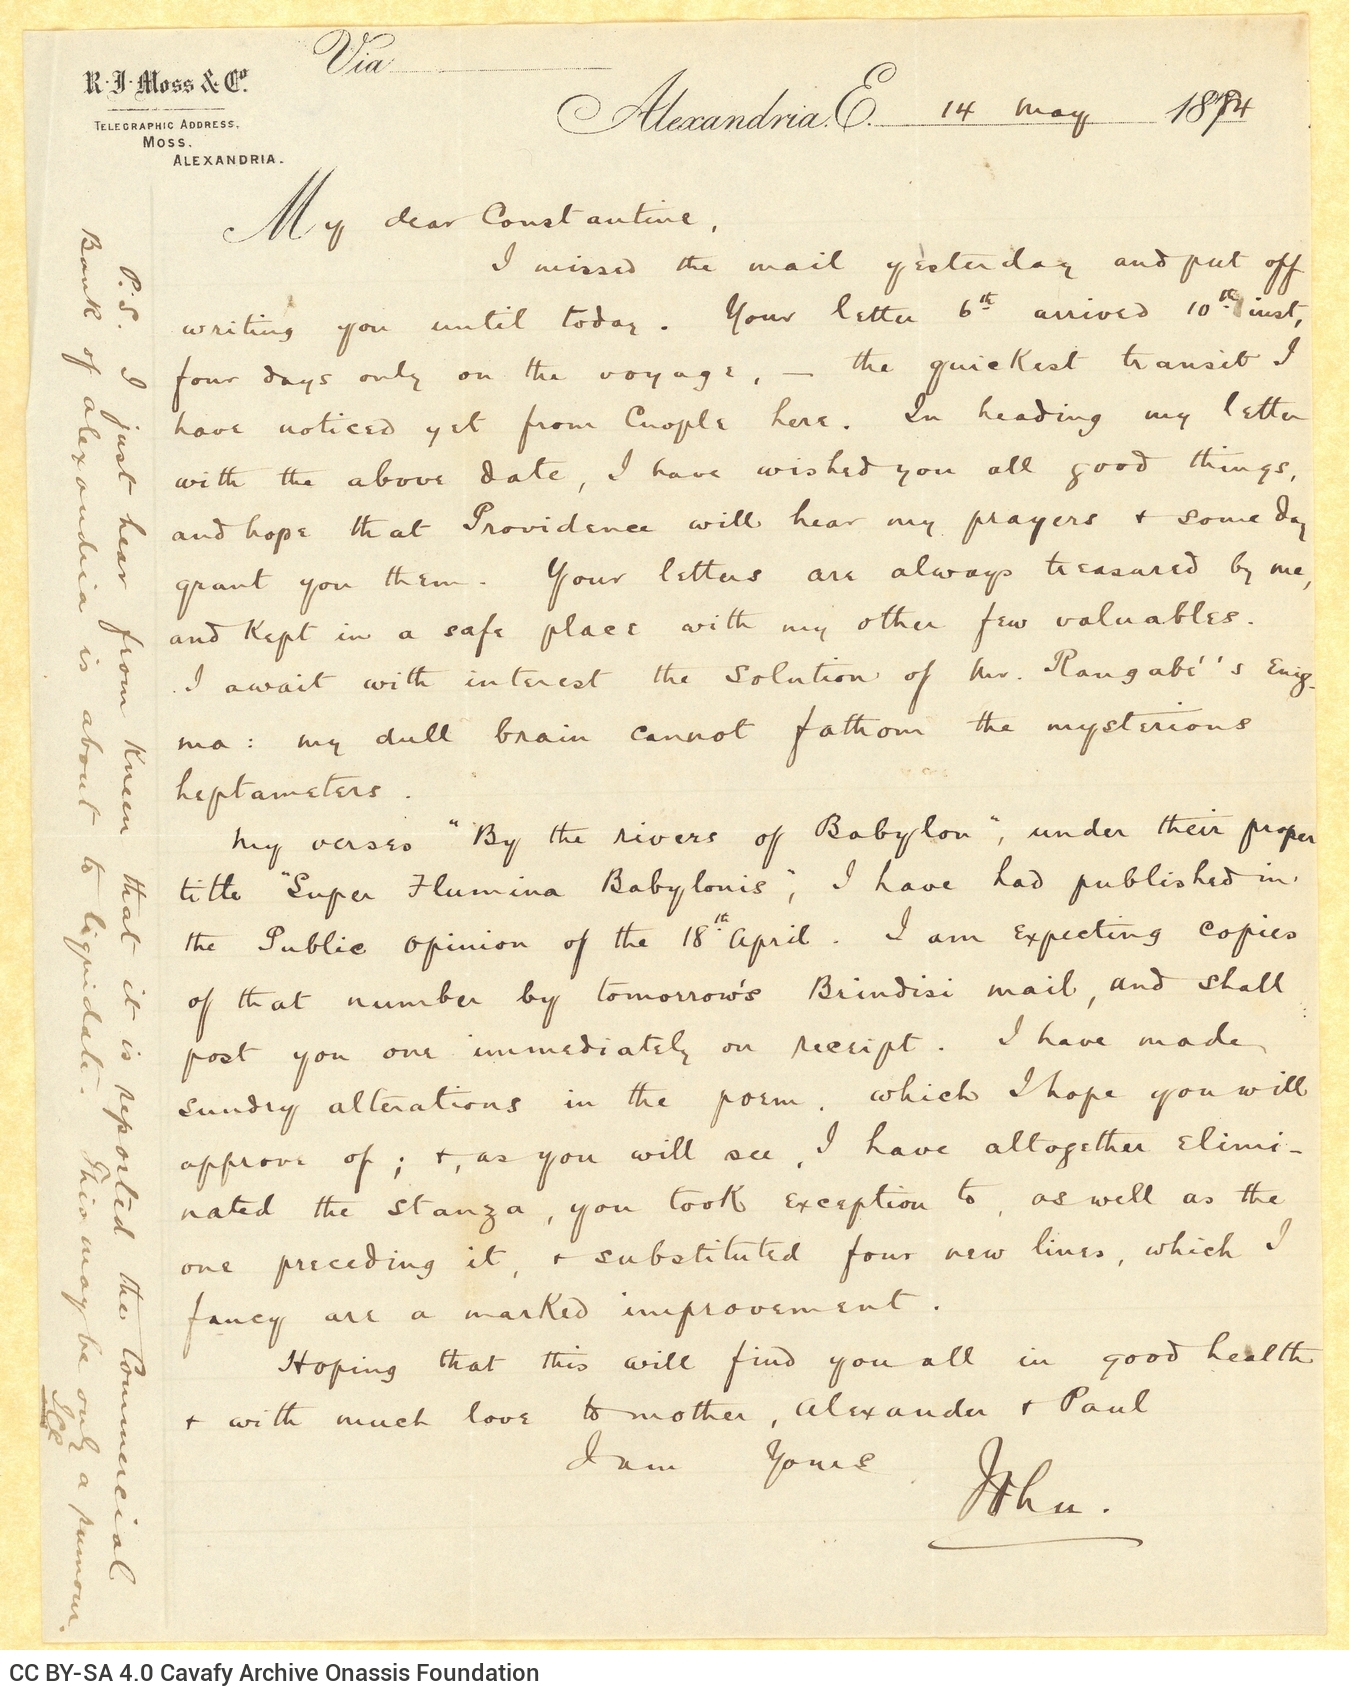 R. J. Moss & Co.
TELEGRAPHIC ADDRESS.
MOSS.
ALEXANDRIA.
Via
Alexandria. E. 14 May 1884
My dear Constantine,
I missed the mail yesterday and put off
writing you until today. Your letter 6th arrived 10th inst,
four days only on the voyage, — the quickest transit I
have noticed yet from Cnople here. In heading my letter
with the above date, I have wished you all good things,
and hope that Providence will hear my prayers & some day
grant you them. Your letters are always treasured by me,
and kept in a safe place with my other few valuables.
I await with interest the solution of Mr. Rangabé's Enig-
ma: my dull brain cannot fathom the mysterious
heptameters.
My verses "By the rivers of Babylon", under their proper
title "Super Flumina Babylonis", I have had published in
the Public Opinion of the 18th April. I am expecting copies
of that number by tomorrow's Brindisi mail, and shall
post you one immediately on receipt. I have made
sundry alterations in the poem, which I hope you will
approve of; &, as you will see, I have altogether elimi-
nated the stanza, you took exception to, as well as the
one preceding it, & substituted four new lines, which I
fancy are a marked improvement.
Hoping that this will find you all in good health
& with much love to mother, Alexander & Paul
I am Yours
John.
P.S. I just hear from Kneen that it is reported the Commercial
Bank of Alexandria is about to liquidate. This may be only a rumour.
JCC
CC BY-SA 4.0 Cavafy Archive Onassis Foundation